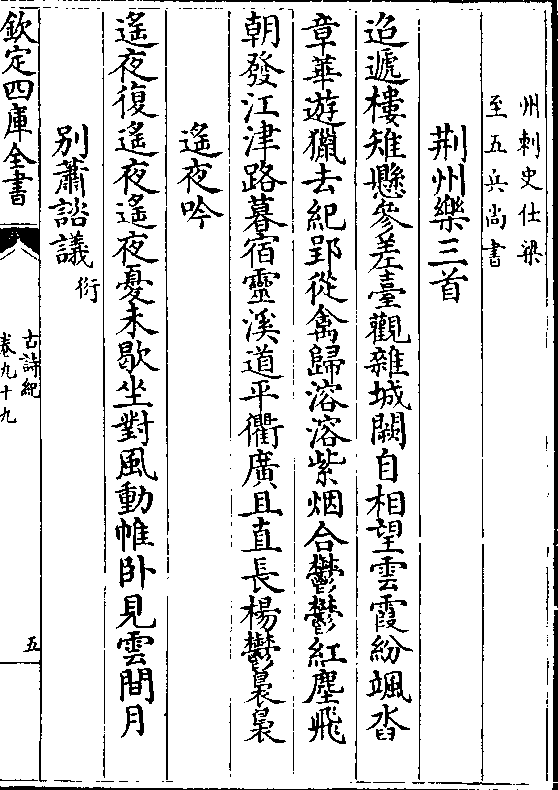 州刺史仕梁
至五兵尚書
荆州樂三首
迢遞樓雉懸參差臺觀雜城闕自相望雲霞紛颯沓
章華遊獵去紀郢從禽歸溶溶紫烟合鬱鬱紅塵飛
朝發江津路暮宿靈溪道平衢廣且直長楊鬱裊裊
遙夜吟
遙夜復遙夜遙夜憂未歇坐對風動帷卧見雲間月
別蕭諮議衍
欽定四庫全書
古詩紀
卷九十九
五